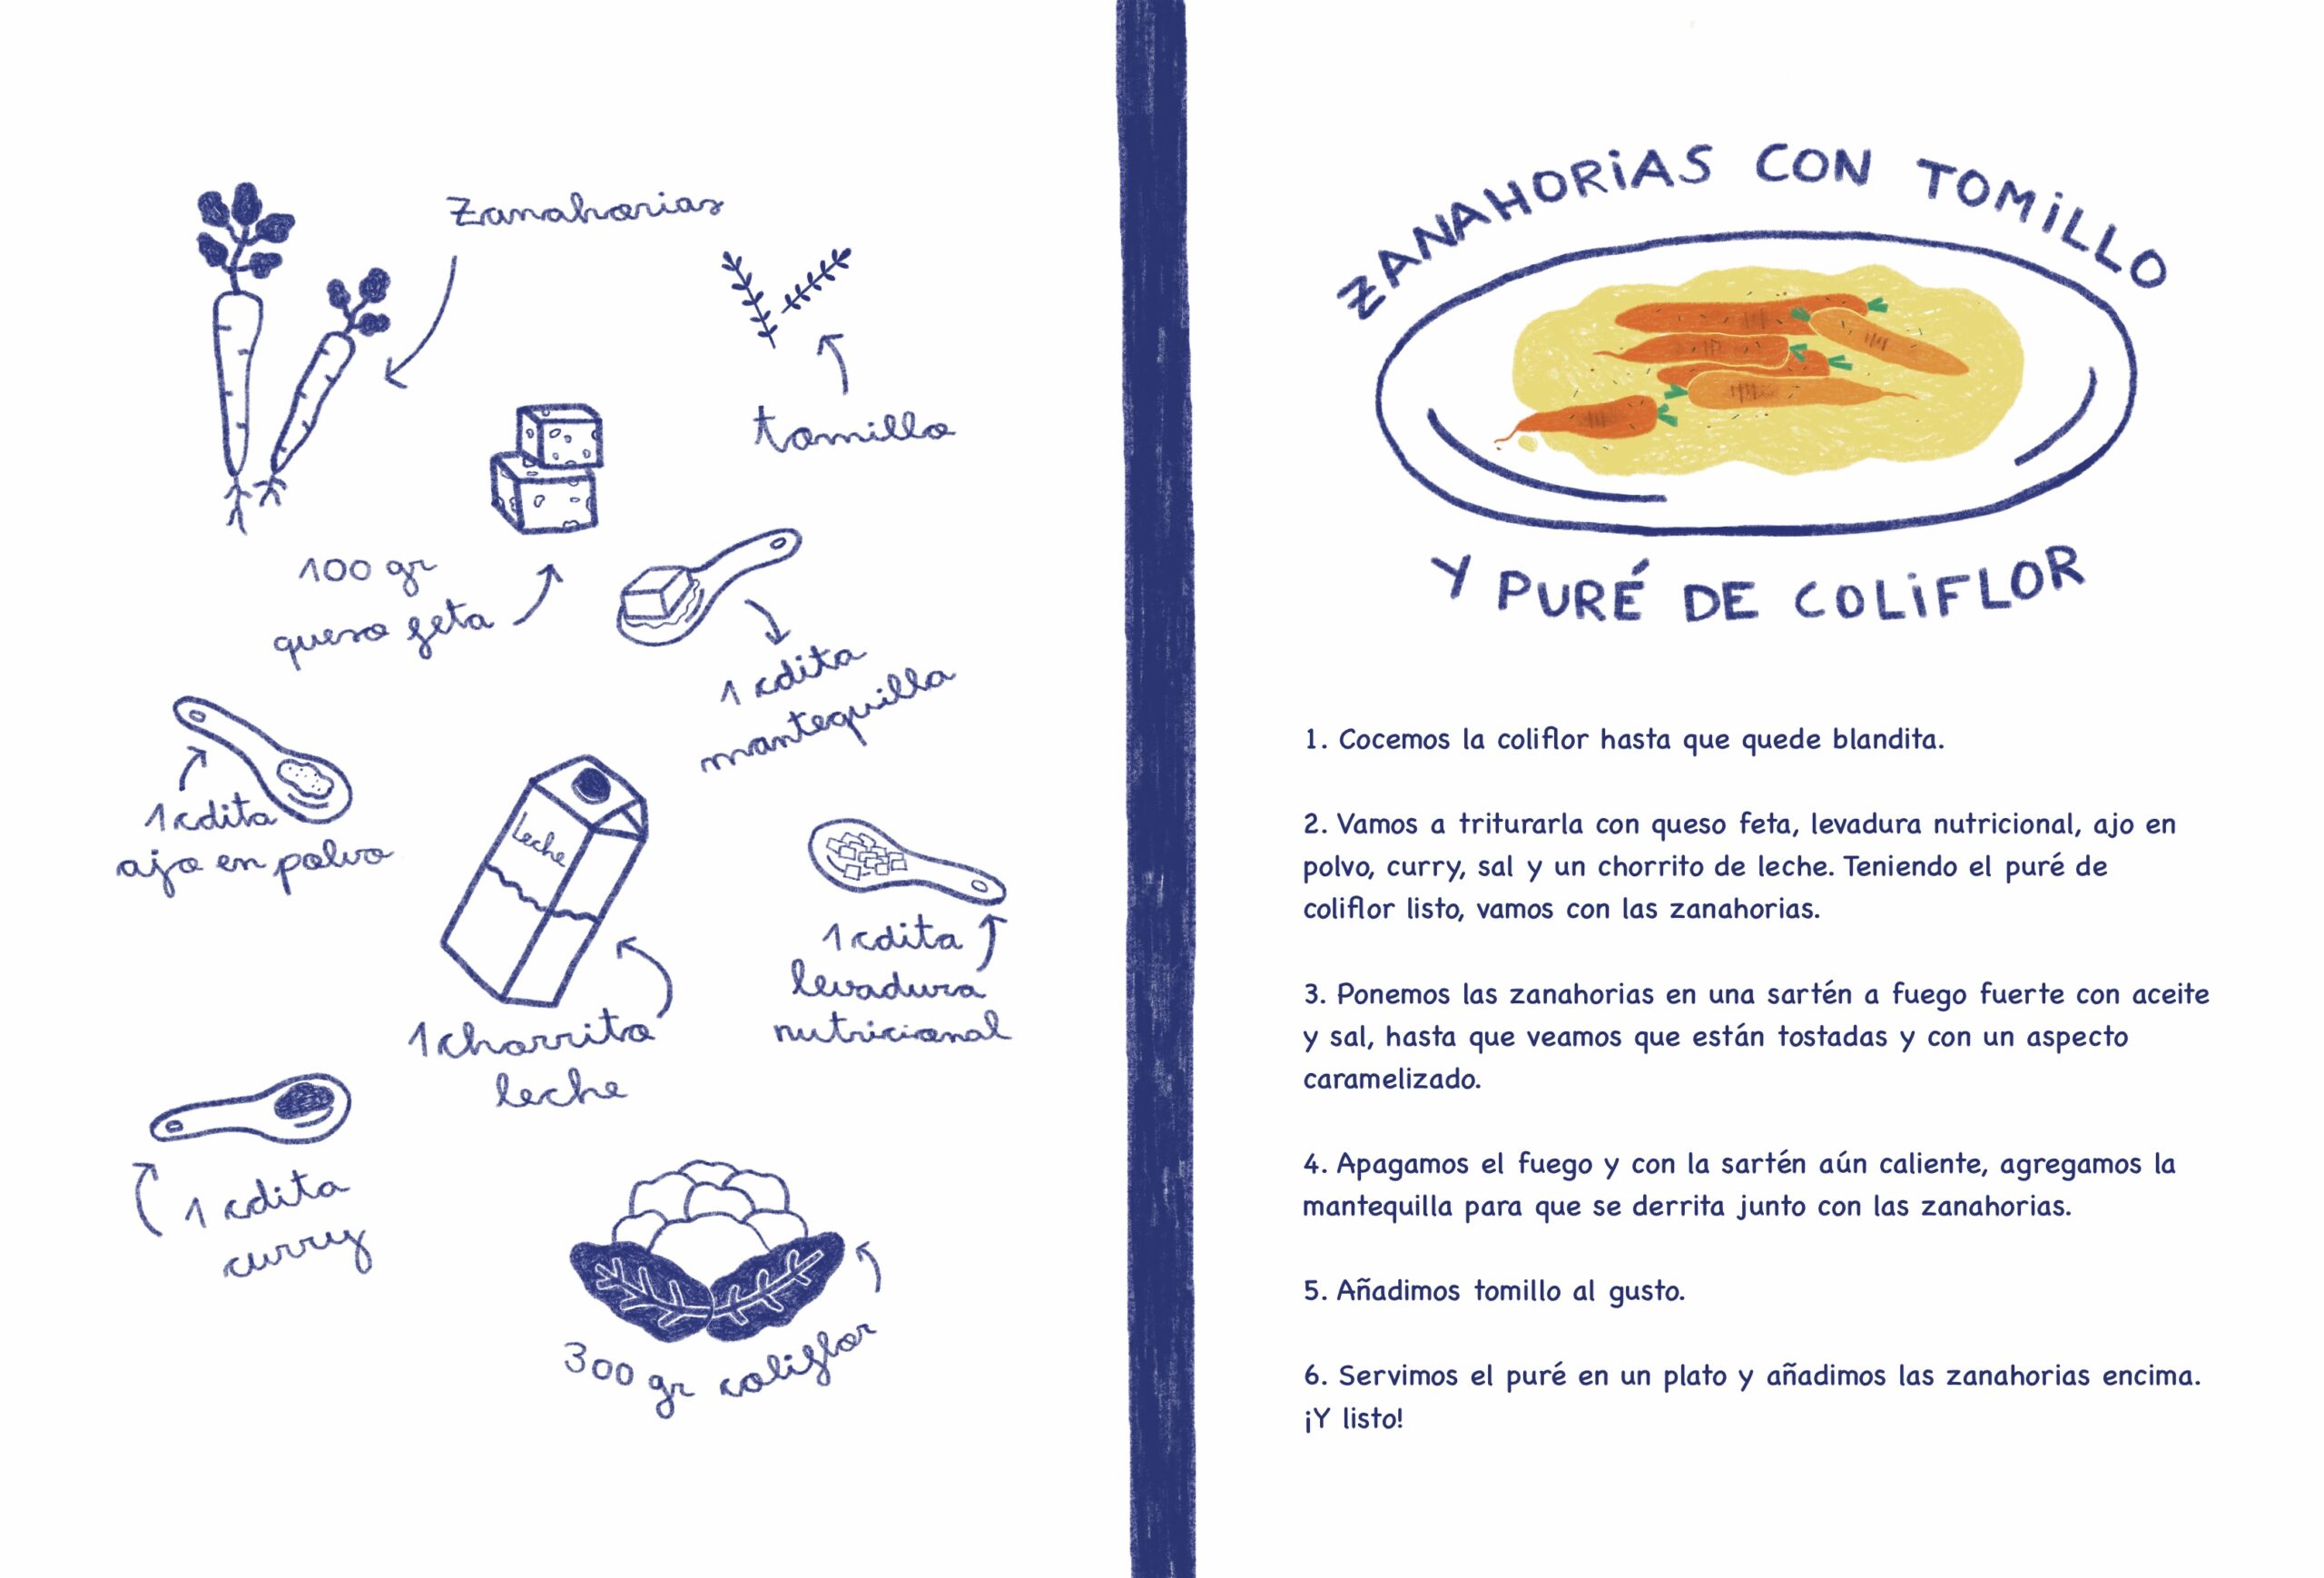 Zanahorias
tomillo
100 gr
queso feta
1 cdita
mantequilla
1 cdita
ajo en polvo
Leche
1 cdita
levadura
nutricional
1 chorrito
leche
1 cdita
curry
300 gr coliflor
ZANAHORiAS CON TOMiLLO
Y PURÉ DE COLiFLOR
1. Cocemos la coliflor hasta que quede blandita.
2. Vamos a triturarla con queso feta, levadura nutricional, ajo en
polvo, curry, sal y un chorrito de leche. Teniendo el puré de
coliflor listo, vamos con las zanahorias.
3. Ponemos las zanahorias en una sartén a fuego fuerte con aceite
y sal, hasta que veamos que están tostadas y con un aspecto
caramelizado.
4. Apagamos el fuego y con la sartén aún caliente, agregamos la
mantequilla para que se derrita junto con las zanahorias.
5. Añadimos tomillo al gusto.
6. Servimos el puré en un plato y añadimos las zanahorias encima.
¡Y listo!